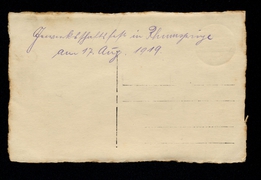 Gewerkschaftsfest in Rhumspringe
am 17. Aug. 1919